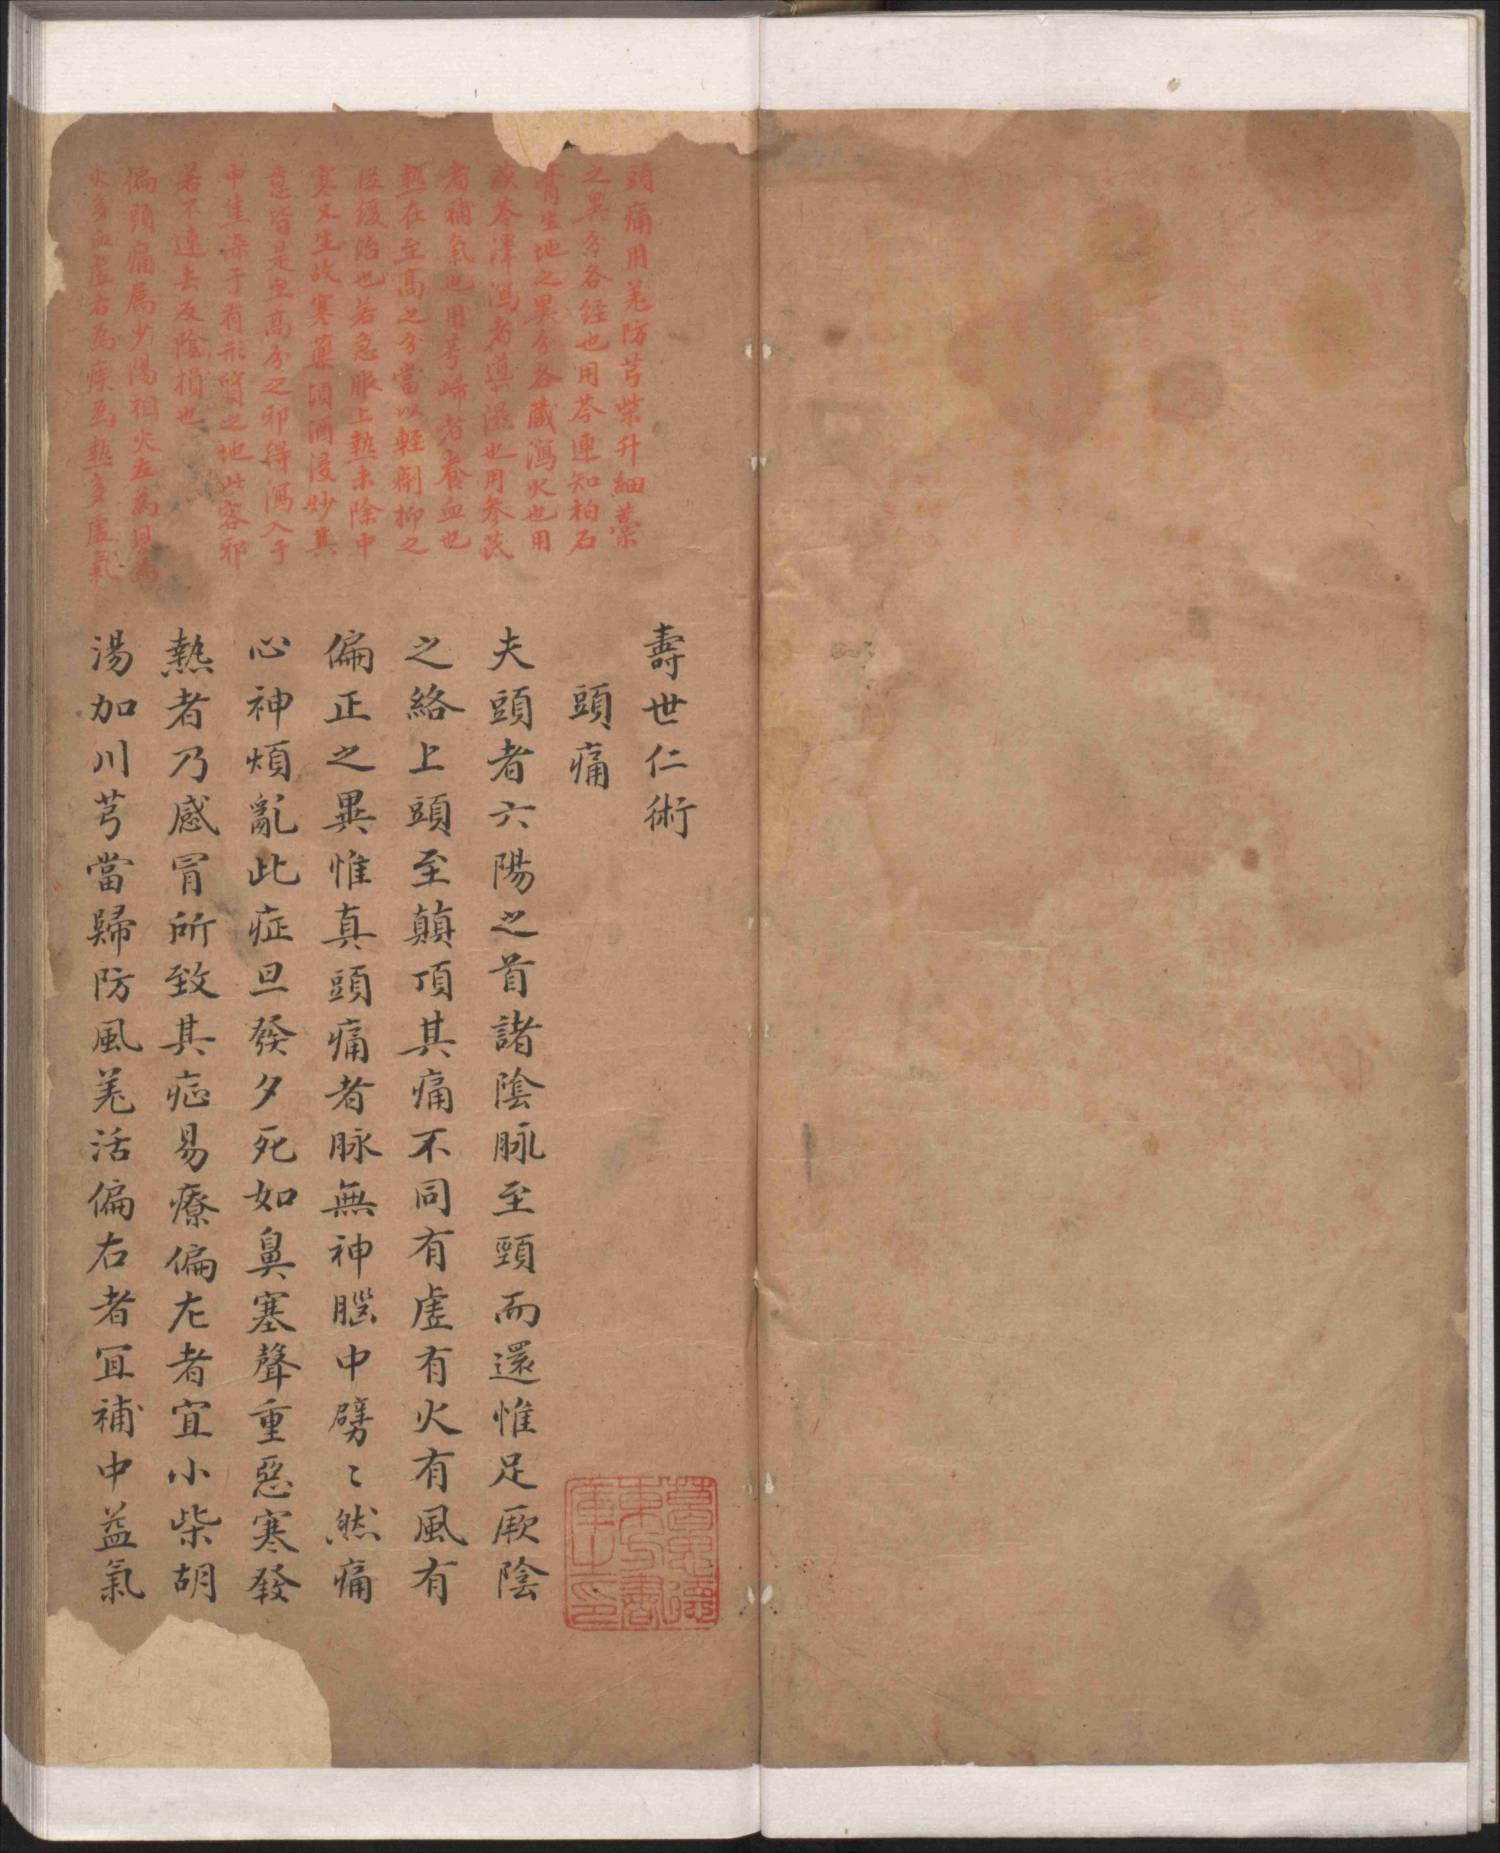 頭痛用羗防芎柴升細藁
之異分各經也用芩連知柏石
膏生地之異分各藏瀉火也用
茯苓澤瀉者導濕也用參芪
者補氣也用芎歸者養血也
熱在至高之分當以輕劑抑之
從緩治也若急服上熱未除中
寒又生故寒藥須酒浸炒其
意皆是至高分之邪得瀉入于
中焦滲于有形質之地此客邪
若不達去反陰損也
偏頭痛屬少陽相火左為風為
火多血虛右為痰為熱多虛氣
壽世仁術
頭痛
夫頭者六陽之首諸陰脉至頸而還惟足厥陰
之絡上頭至顛頂其痛不同有虛有火有風有
偏正之異惟真頭痛者脉無神腦中劈〻然痛
心神煩亂此症旦發夕死如鼻塞聲重惡寒發
熱者乃感冐所致其症易療偏左者宜小柴胡
湯加川芎當歸防風羗活偏右者宜補中益氣